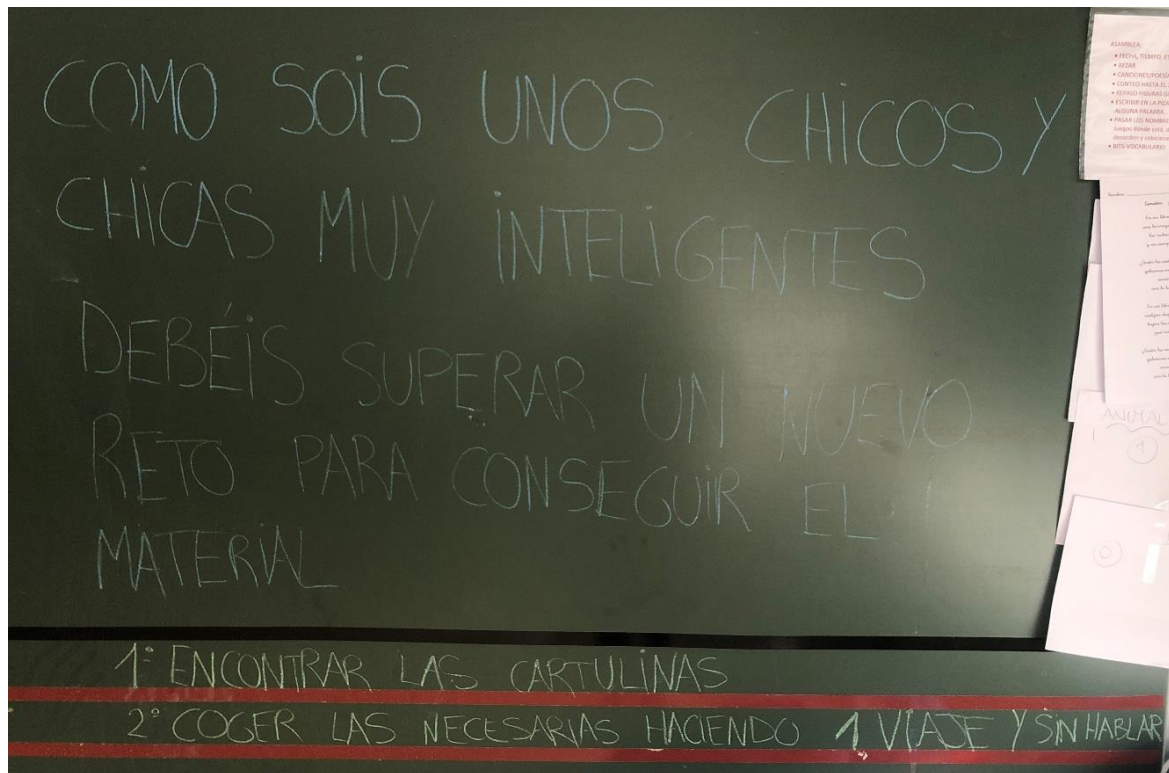 COMO SOIS UNOS CHICOS Y
CHICAS MUY INTELIGENTES
DEBÉIS SUPERAR UN NUEVO
RETO PARA CONSEGUIR EL
MATERIAL
1º ENCONTRAR LAS CARTULINAS
2º COGER LAS NECESARIAS HACIENDO 1 VIAJE Y SIN HABLAR
ASAMBLEA
• FECHA, TIEMPO,
• REZAR
• CONTEO HASTA EL
• REPASO FIGURAS
• ESCRIBIR EN LA
ALGUNA PALABRA
• PASAR LOS
juegos dónde está,
desorden y
• BITS VOCABULARIO
Nombre
ANIMAL
1
0